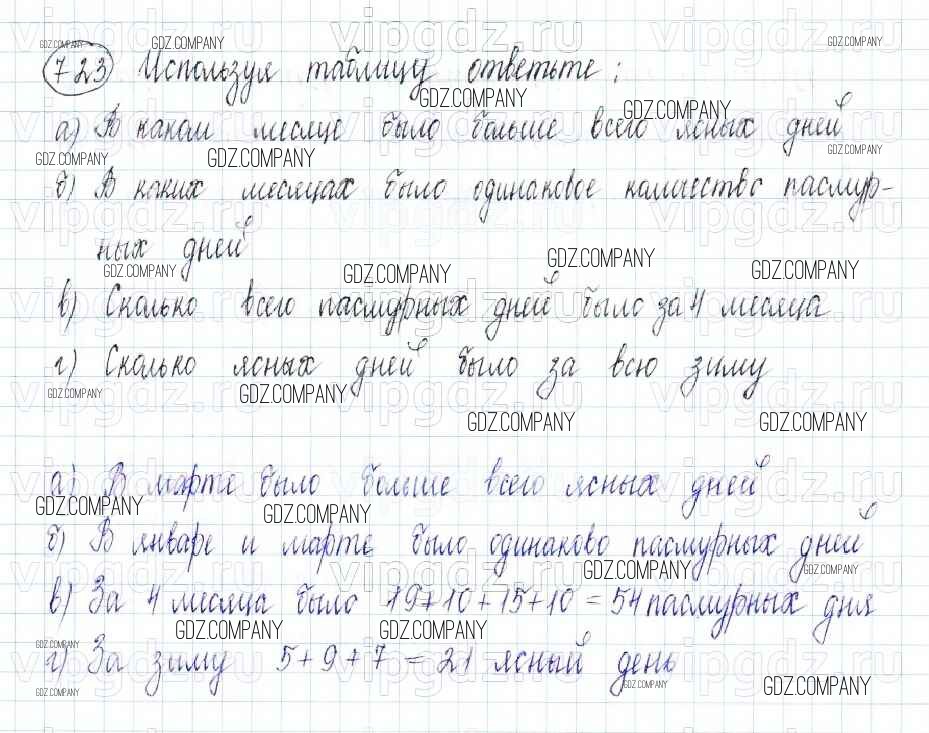 723 Используя таблицу ответьте:
а) В каком месяце было больше всего ясных дней
б) В каких месяцах было одинаковое количество пасмур-
ных дней
в) Сколько всего пасмурных дней было за 4 месяца
г) Сколько ясных дней было за всю зиму
а) В марте было больше всего ясных дней
б) В январе и марте было одинаково пасмурных дней
в) За 4 месяца было 19+10+15+10 = 54 пасмурных дня
г) За зиму 5+9+7 = 21 ясный день
GDZ.COMPANY
vipgdz.ru